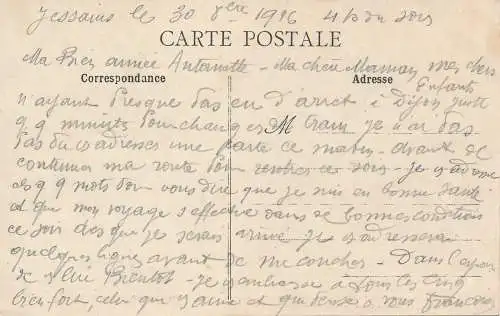 Jessains le 30 9bre 1916 4 h du soir
CARTE POSTALE
Ma Bien aimée Antoinette - Ma chère Maman mes chers
Correspondance Adresse
Enfants
n'ayant Presque Pas eu d'arrêt à Dijon juste
9 minutes Pour changer de Train je n'ai Pas
Pas Pu vous adresser une carte ce matin - avant de
continuer ma route Pour rentrer ce soir - je vous adresse
quelques mots Pour vous dire que je suis en bonne santé
et que mon voyage s'effectue dans de bonnes conditions
ce soir dès que je serai arrivé je vous adresserai
quelques lignes avant de me coucher - Dans l'espoir
de vous lire Bientôt - je vous embrasse à tous les cinq
bien fort, celui qui vous aime et qui pense à vous François